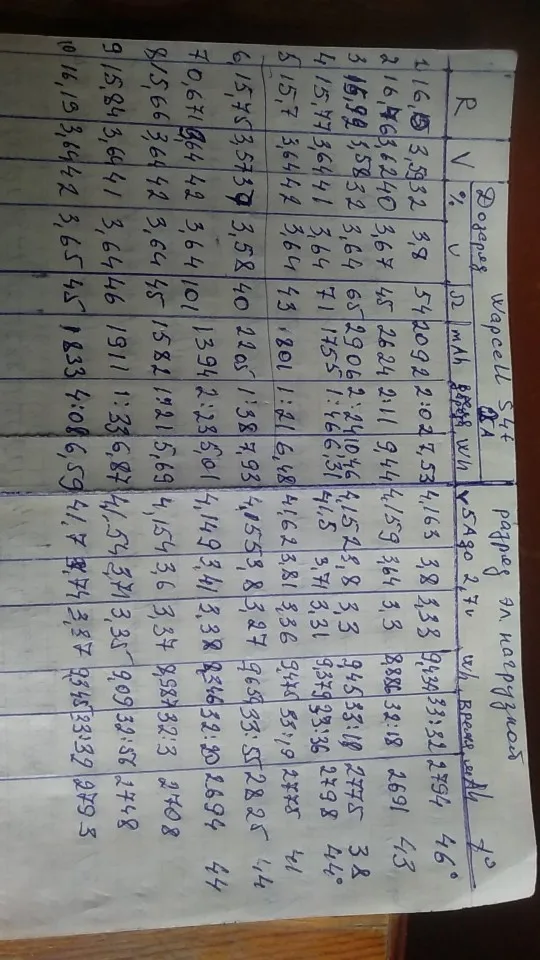 Дозаряд wapcell S4+ разряд эл нагрузкой
R V % V Ω mAh время wh V 5A до 2,7v wh время mAh t°
1 16,15 3,59 32 3,8 54 2092 2:02 7,53 4,163 3,8 3,33 9,434 33:32 2794 46°
2 16,76 3,62 40 3,67 45 2624 2:11 9,44 4,159 3,64 3,3 8,886 32:18 2691 43
3 16,92 3,58 32 3,64 65 2906 2:24 10,46 4,152 3,8 3,3 9,45 33:18 2775 38
4 15,77 3,64 41 3,64 71 1755 1:46 6,31 4,15 3,71 3,31 9,379 33:36 2798 44°
5 15,7 3,64 42 3,64 43 1801 1:21 6,48 4,162 3,81 3,36 9,475 33:19 2775 41
6 15,75 3,57 37 3,58 40 2205 1:38 7,93 4,155 3,8 3,27 9,654 33:55 2825 44
7 0,671 3,64 42 3,64 101 1394 2:23 5,01 4,149 3,41 3,38 8,346 32:20 2694 44
8 15,66 3,64 42 3,64 45 1582 1921 5,69 4,154 3,6 3,37 8,987 32:3 2708
9 15,84 3,64 41 3,64 46 1911 1:33 6,87 4,154 3,71 3,35 9,09 32:56 2748
10 16,15 3,64 42 3,65 45 1833 4:08 6,59 4,17 3,74 3,37 9,345 33:32 2793